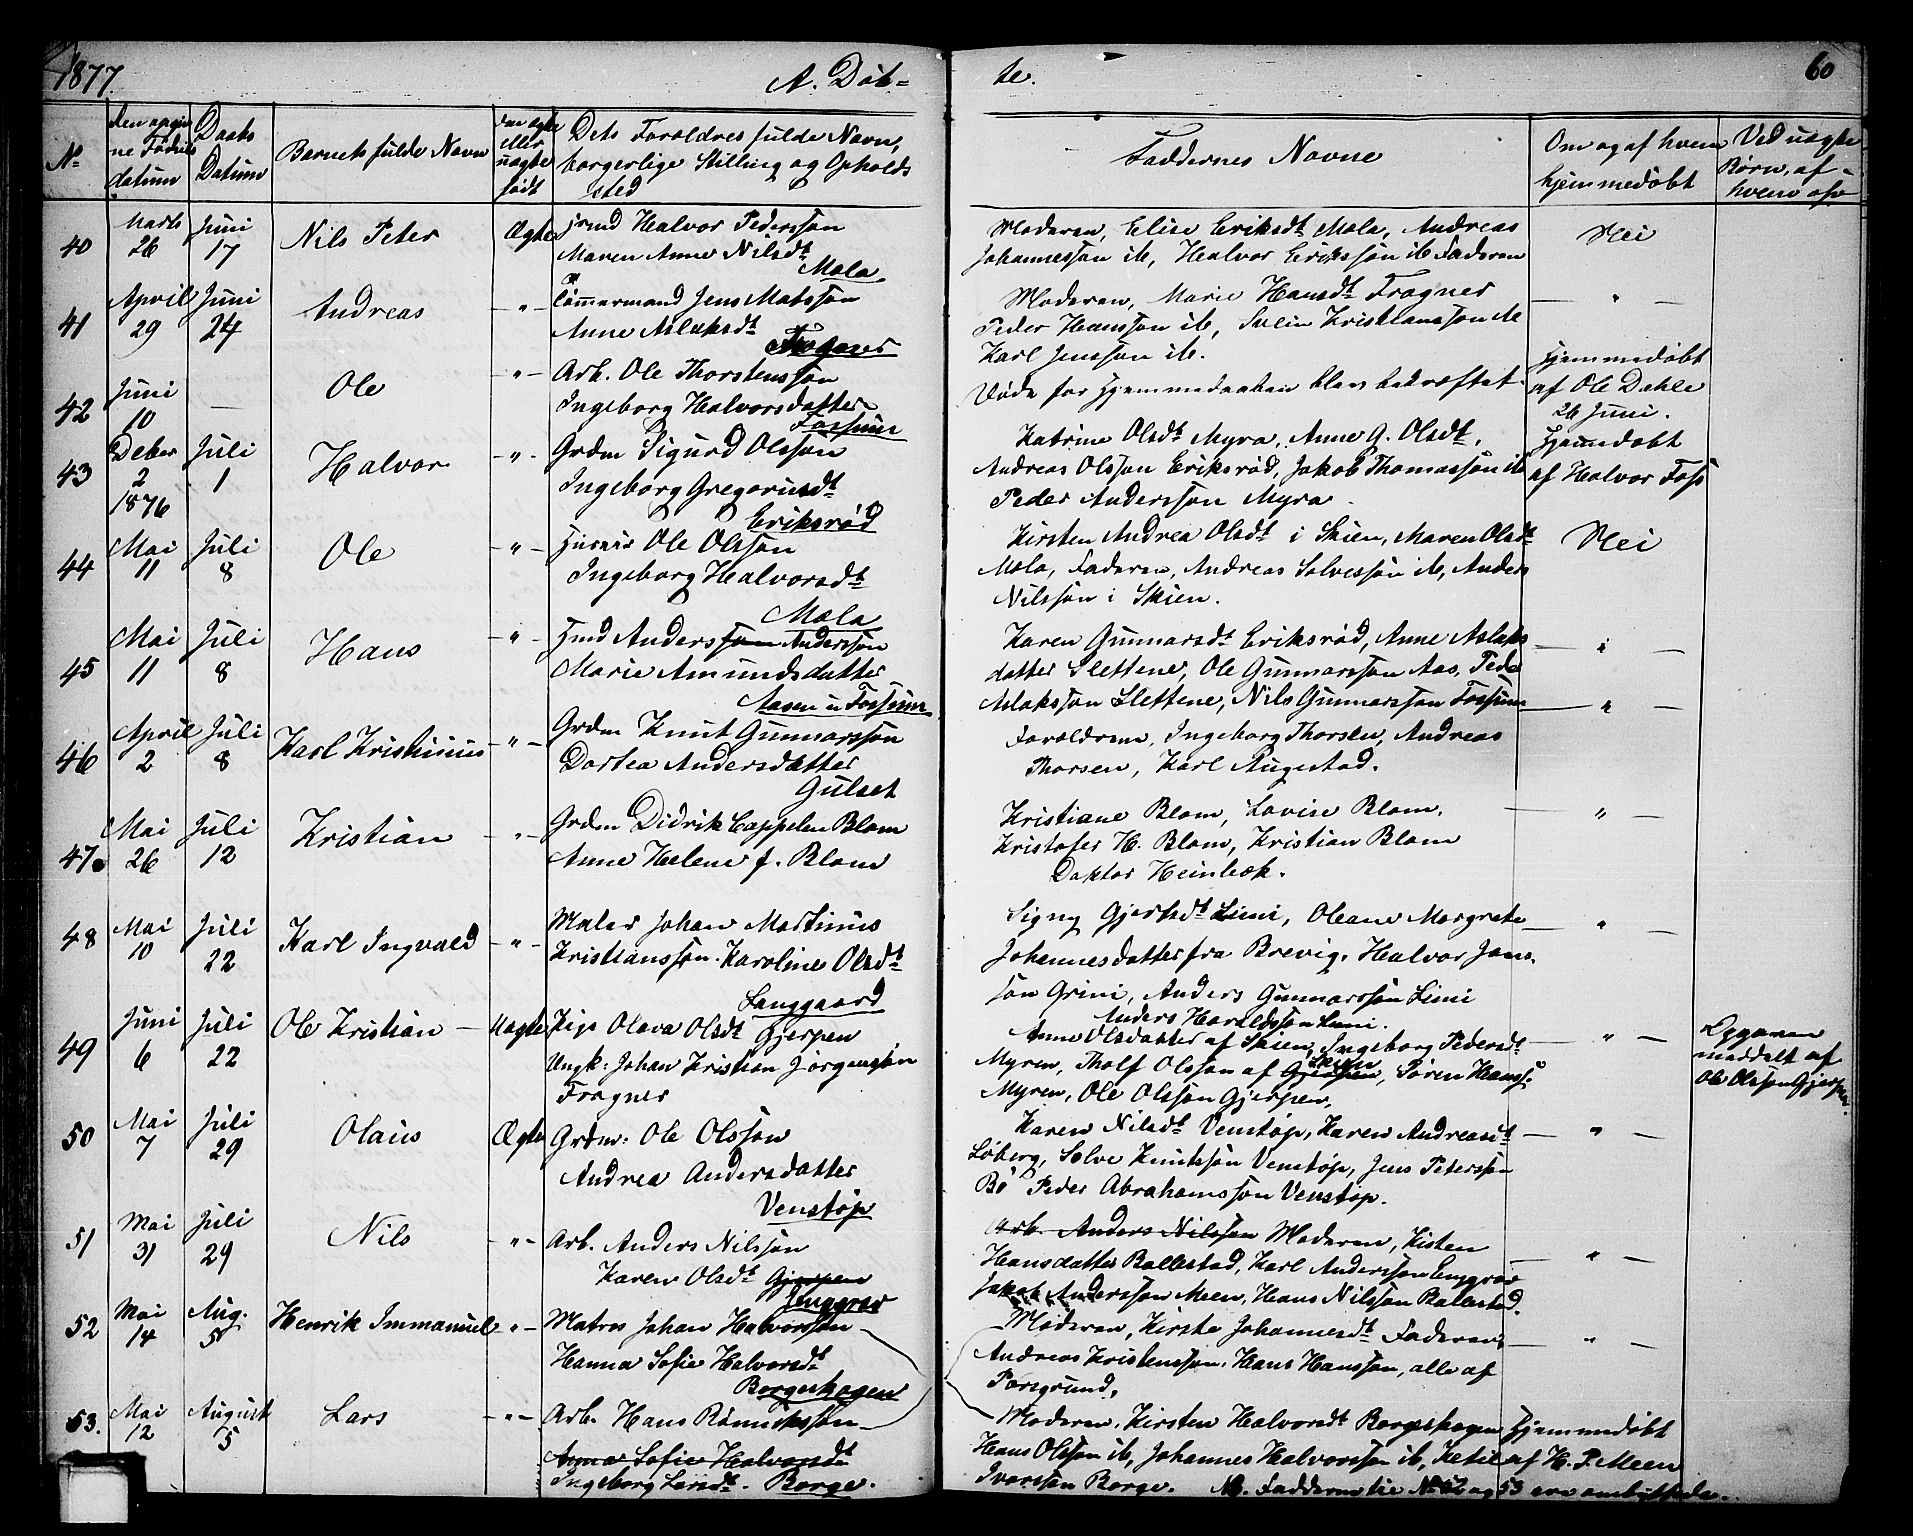 1877. A. Döb= te. 60
No
den angivne Födselsdatum
Daabs Datum
Barnets fulde Navn
om ægte eller uægte födt
Dets Forældres fulde Navn, borgerlige Stilling og Opholdssted
Faddernes Navne
Om og af hvem hjemmedöbt
Ved uægte Börn, af hvem
40 Marts 26 Juni 17 Nils Peter Ægte
Halvor Pederssön
Maren Anne Nilsdt
Mæla
Moderen, Elise Eriksdt Mæla, Andreas
Johannessön ib, Halvor Erikssön ib Faderen
Nei
41 April 29 Juni 24 Andreas - " -
Tömmermand Jens Matssön
Anne Aslaksdt
Frogner
Moderen, Marie Hansdt Frogner
Peder Hanssön ib, Svein Kristianssön ib
Karl Jenssön ib.
— " —
42 Juni 10 — Ole - " -
Arb. Ole Thorstenssön
Ingeborg Halvorsdatter
Fossum
Döde för Hjemmedaaben blev bekræftet.
Hjemmedöbt
af Ole Dahle
26 Juni.
43 Deber 2 1876 Juli 1 Halvor - " -
Grdm Sigurd Olssön
Ingeborg Gregoriusdt
Eriksröd
Katrine Olsdt Myra, Anne G. Olsdt,
Andreas Olssön Eriksröd, Jakob Thomassön ib
Peder Anderssön Myra.
Hjemmedöbt
af Halvor Foss
44 Mai 11 Juli 8 Ole - " -
Husmd Ole Olssön
Ingeborg Halvorsdt
Mæla
Kirsten Andrea Olsdt i Skien, Maren Olsdt
Mæla, Faderen, Andreas Solvessön ib, Anders
Nilssön i Skien.
Nei
45 Mai 11 Juli 8 Hans - " -
Hmd Anderssön Anderssön
Marie Amundsdatter
Aasen u Fossum
Karen Gunnarsdt Eriksröd, Anne Aslaks
datter Slettene, Ole Gunnarssön Aas, Peder
Aslakssön Slettene, Nils Gunnarssön Fossum
— " —
46 April 2 Juli 8 Karl Kristinius - " -
Grdm Knut Gunnarssön
Dortea Andersdatter
Gulset
Forældrene, Ingeborg Thorsen, Andreas
Thorsen, Karl Augestad.
— " —
47. Mai 26 Juli 12 Kristian - " -
Grdm Didrik Cappelen Blom
Anne Helene f. Blom
Kristiane Blom, Lovise Blom,
Kristofer H. Blom, Kristian Blom
Doktor Heinbek.
— " —
48 Mai 10 Juli 22 Karl Ingvald - " -
Maler Johan Martinius
Kristianssön. Karoline Olsdt
Langgaard
Signy Gjertsdt Limi, Oleane Margrete
Johannesdatter fra Brevig. Halvor Jons
sön Grini, Anders Gunnarssön Limi
Anders Haraldssön Limi.
— " —
49 Juni 6 Juli 22 Ole Kristian — Uægte
Pige Olava Olsdt Gjerpen
Ungk: Johan Kristian Jörgenssön
Frogner
Anne Olsdatter af Skien, Ingeborg Pedersdt
Myren, Tholf Olssön af Gjerpen Skien, Sören Hanss.
Myren, Ole Olssön Gjerpen,
— " —
Opgaven
meddelt af
Ole Olssön Gjerpen.
50 Mai 7 Juli 29 Olaus Ægte
Grdm: Ole Olssön
Andrea Andersdatter
Venstöp
Karen Nilsdt Venstöp, Karen Andreasdt
Löberg, Sölve Knutssön Venstöp, Jens Peterssön
Bö Peder Abrahamssön Venstöp.
— " —
51 Mai 31 Juli 29 Nils - " -
Arb. Anders Nilssön
Karen Olsdt Gjerpen
Enggrav
Arb. Anders Nilssön Moderen, Kisten
Hansdatter Ballestad, Karl Anderssön Enggrav
Jakob Anderssön Meen, Hans Nilssön Ballestad.
— " —
52 Mai 14 Aug. 5 Henrik Immanuel - " -
Matros Johan Halvorssön
Hanna Sofie Halvorsdt
Borgeshagen
Moderen, Kirste Johannesdt Faderen,
Andreas Kristenssön, Hans Hanssön, alle af
Porsgrund.
— " —
53. Mai 12 August 5 Lars - " -
Arb. Hans Rönnikssön
Anna Sofie Halvorsdt
Ingeborg Larsdt. Borge.
Moderen, Kirsten Halvorsdt Borgeshagen
Hans Olssön ib, Johannes Halvorssön ib, Ketil
Ivarssön Borge.
Hjemmedöbt
af H. P. Meen
NB. Fadderne til No 52 og 53 ere ombyttede.